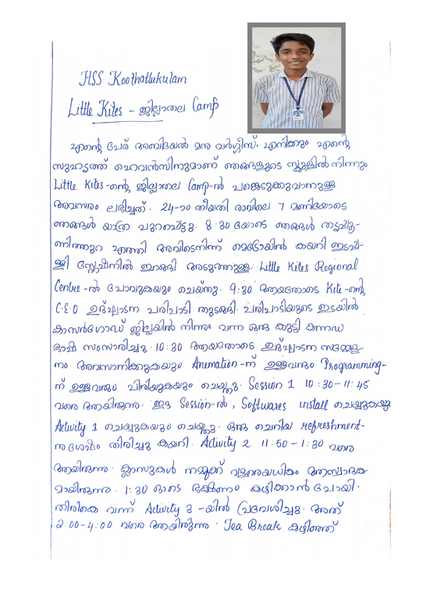 HSS Koothattukulam
Little Kites - ജില്ലാതല Camp
എന്റെ പേര് അബിയേൽ മനു വർഗ്ഗീസ്. എനിക്കും എന്റെ
സുഹൃത്ത് ഹെവൻസിനുമാണ് ഞങ്ങളുടെ സ്കൂളിൽ നിന്നും
Little Kites-ന്റെ ജില്ലാതല Camp-ൽ പങ്കെടുക്കുവാനുള്ള
അവസരം ലഭിച്ചത്. 24-ാം തീയതി രാവിലെ 7 മണിയോടെ
ഞങ്ങൾ യാത്ര പുറപ്പെട്ടു. 8:30 യോടെ ഞങ്ങൾ തൃപ്പൂ-
ണിത്തുറ എത്തി അവിടെനിന്ന് മെട്രോയിൽ കയറി ഇടപ്പ-
ള്ളി സ്റ്റേഷനിൽ ഇറങ്ങി അടുത്തുള്ള Little Kites Regional
Centre-ൽ പോവുകയും ചെയ്തു. 9:30 ആയതോടെ Kite-ന്റെ
C.E.O ഉദ്ഘാടന പരിപാടി തുടങ്ങി. പരിപാടിയുടെ ഇടയിൽ
കാസർഗോഡ് ജില്ലയിൽ നിന്നും വന്ന ഒരു കുട്ടി കന്നഡ
ഭാഷ സംസാരിച്ചു. 10:30 ആയതോടെ ഉദ്ഘാടന സമ്മേള-
നം അവസാനിക്കുകയും Animation-ന് ഉള്ളവരും Programming-
ന് ഉള്ളവരും പിരിയുകയും ചെയ്തു. Session 1 10:30-11:45
വരെ ആയിരുന്നു. ഈ Session-ൽ, Softwares install ചെയ്യുകയും
Activity 1 ചെയ്യുകയും ചെയ്തു. ഒരു ചെറിയ refreshment-
നു ശേഷം തിരിച്ചു കയറി. Activity 2 11:50-1:30 വരെ
ആയിരുന്നു. ക്ലാസുകൾ നമുക്ക് വളരെയധികം ആസ്വാദക-
മായിരുന്നു. 1:30 ഓടെ ഭക്ഷണം കഴിക്കാൻ പോയി.
തിരികെ വന്ന് Activity 3-യിൽ പ്രവേശിച്ചു. അത്
2:00-4:00 വരെ ആയിരുന്നു. Tea Break കഴിഞ്ഞ്